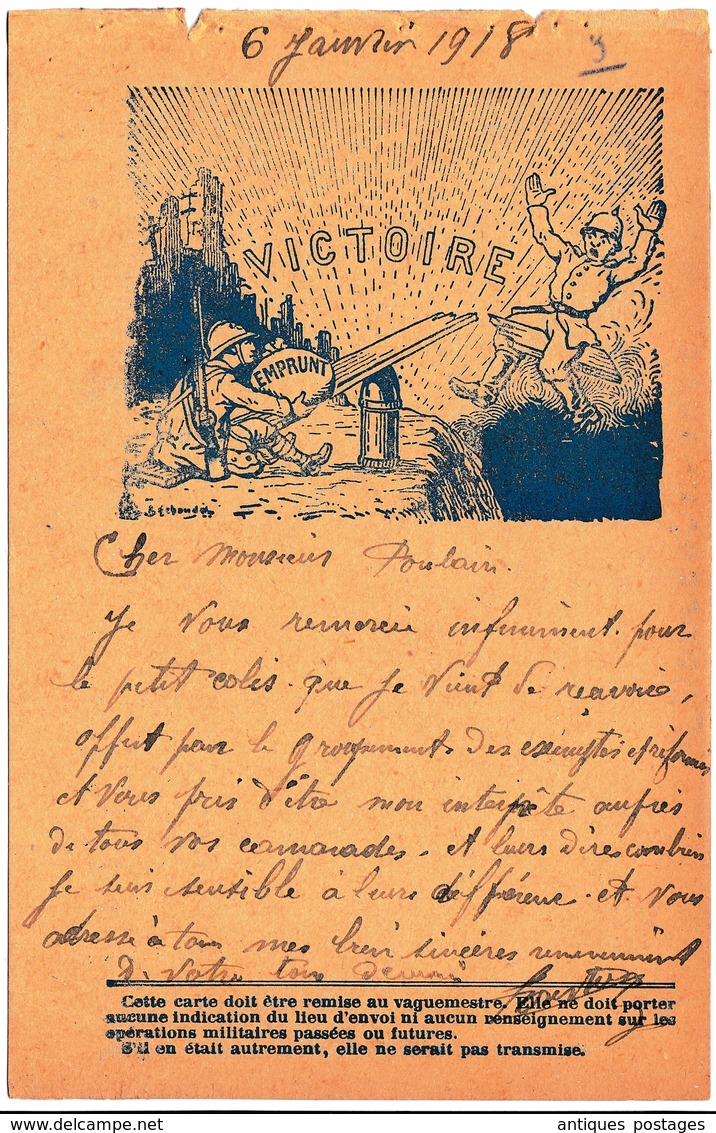 6 Janvier 1918
3
VICTOIRE
EMPRUNT
Cher Monsieur Poulain.
Je vous remercie infiniment. pour
le petit colis. que je vient de reçavoir,
offert par le groupements des exemptés et réformés
et vous pris d'être mon interprète auprès
de tous vos camarades. et leurs dires combien
je suis sensible à leurs défférence. et vous
adresse à tous mes bien sincères remerciment
De votre tou dévoué
Cette carte doit être remise au vaguemestre. Elle ne doit porter
aucune indication du lieu d'envoi ni aucun renseignement sur les
opérations militaires passées ou futures.
S'il en était autrement, elle ne serait pas transmise.
antiques postages